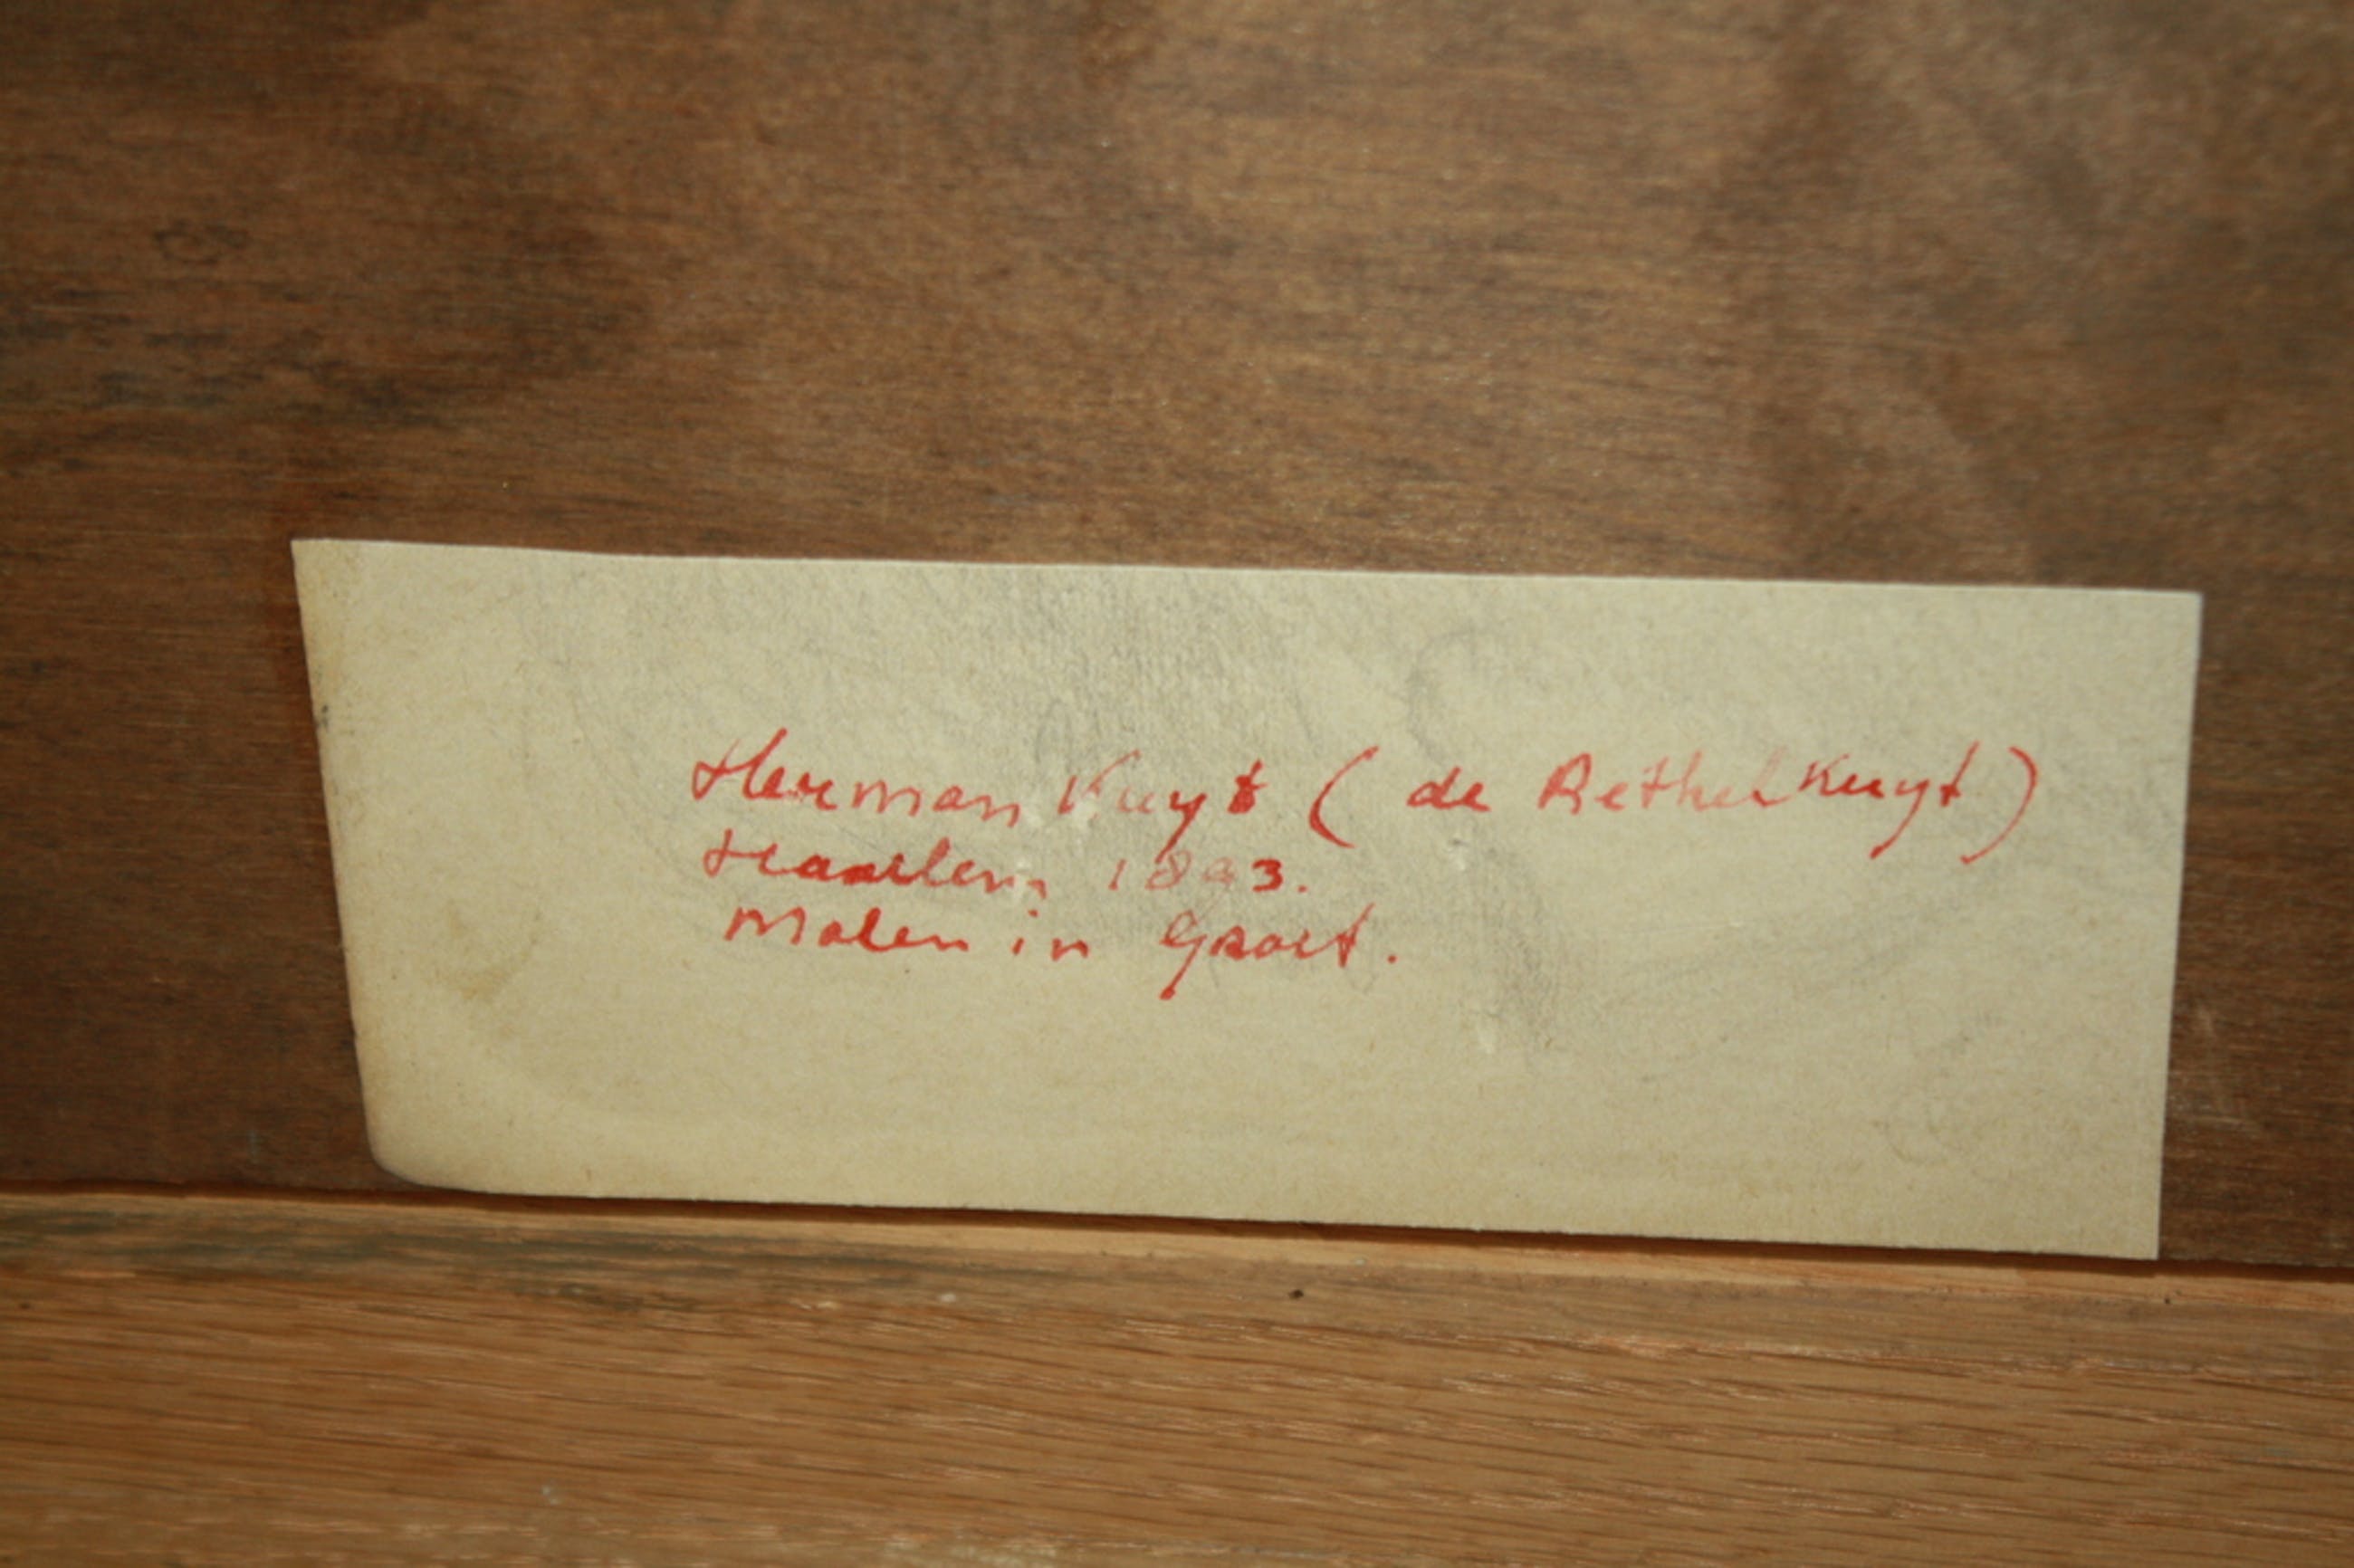 Herman Kuyt (de Rethel Kuyt)
Haarlem 1893.
Molen in Groet.